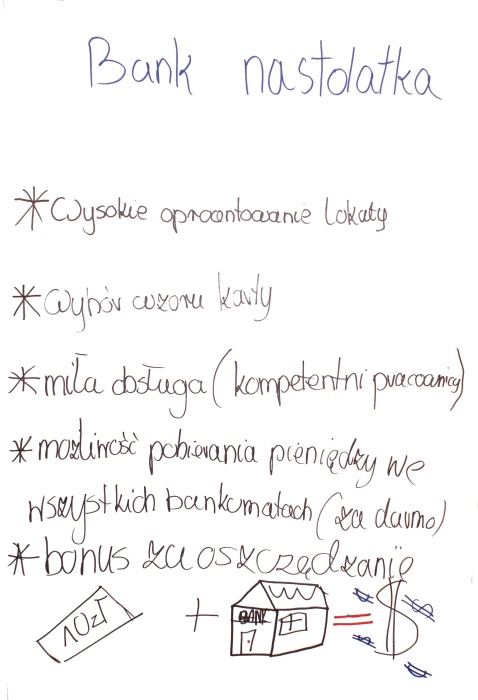 Bank nastolatka
* Wysokie oprocentowanie lokaty
* Wybór wzoru karty
* miła obsługa (kompetentni pracownicy)
* możliwość pobierania pieniędzy we
wszystkich bankomatach (za darmo)
* bonus za oszczędzanie
10zł + BANK = $